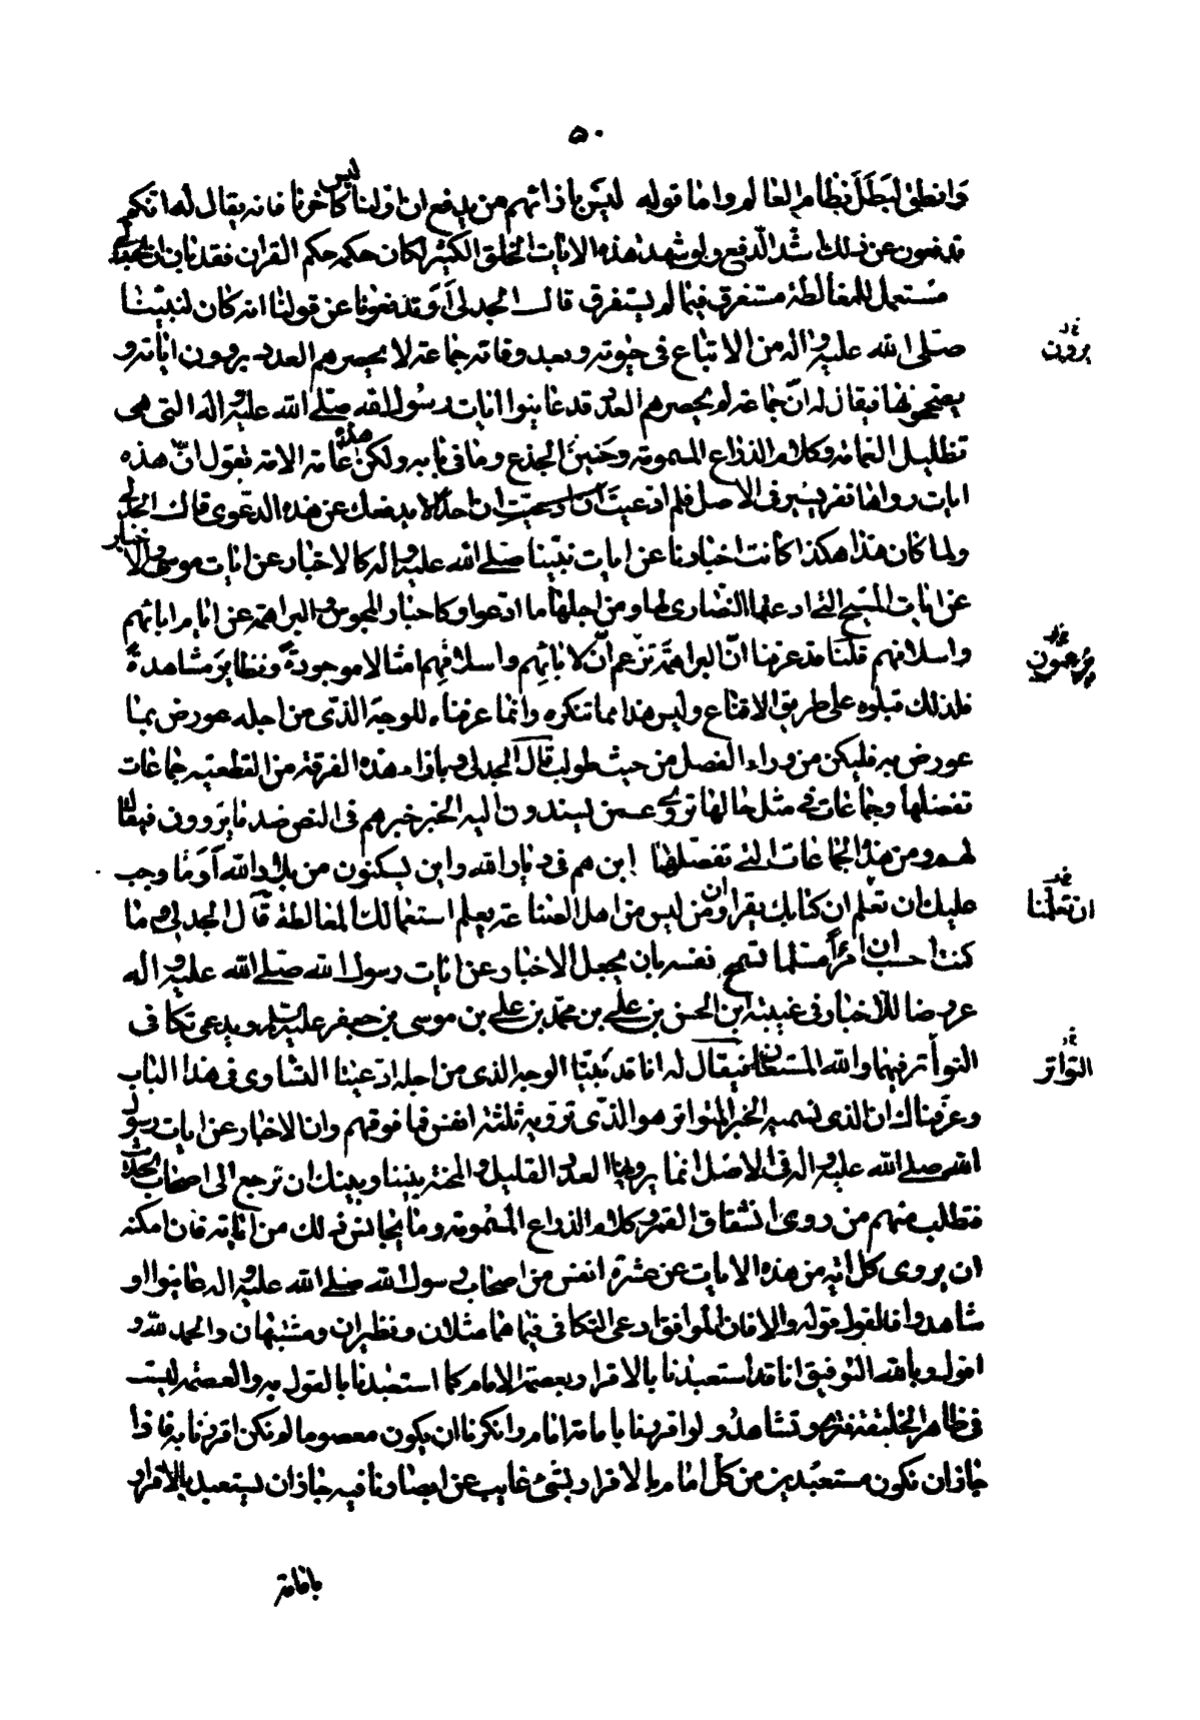 ٥٠
وانطق لبطل نظام العالم واما قوله ليس بازائهم من يدفع ان اولنا ليس كاخرنا فانه يقال له انكم
تدفعون عن ذلك اشد الدفع ولو شهد هذه الايات الخلق الكثير لكان حكمه حكم القران فقد بان ان الجدلي
مستعمل للمغالطة مستغرق فيما لم يستغرق قال الجدلي أو تدفعونا عن قولنا انه كان لنبينا
صلى الله عليه واله من الاتباع في حيوته وبعد وفاته جماعة لا يحصرهم العدد يروون اياته و
يصححونها فيقال له ان جماعة لم يحصرهم العدد قد عاينوا ايات رسول الله صلى الله عليه واله التي هي
تظليل الغمامة وكلام الذراع المسمومة وحنين الجذع وما في بابه ولكن هذه عامة الامة تقول ان هذه
ايات رواها نفر يسير في الاصل فلم ادعيت ان احدا لا يدفعك عن هذه الدعوى قال الجدلي
ولما كان هذا هكذا كانت اخبارنا عن ايات نبينا صلى الله عليه واله كالاخبار عن ايات موسى والاخبار
عن ايات المسيح التي ادعتها النصارى لها ومن اجلها ما ادعوا وكاخبار المجوس والبراهمة عن ايام ابائهم
واسلافهم قلنا قد عرفنا ان البراهمة تزعم ان لابائهم واسلافهم امثالا موجودة ونظاير مشاهدة
فلذلك قبلوه على طريق الاقناع وليس هذا مما تنكره وانما عرفناه للوجه الذي من اجله عورض بما
عورض به فليكن من وراء الفصل من حيث طولب قال الجدلي وبازاء هذه الفرقة من القطعية جماعات
تفضلها وجماعات في مثل حالها تروي عمن يسندون اليه الخبر خبرهم في النص ضد ما يروون فيقال
لهم ومن هذه الجماعات التي تفضلها اين هم في ديار الله واين يسكنون من بلاد الله أو ما وجب
عليك ان تعلم ان كتابك يقرأ وان من ليس من اهل الصناعة يعلم استعمالك للمغالطة قال الجدلي ما
كنت احسب ان امرأ مسلما تسمح نفسه بان يجعل الاخبار عن ايات رسول الله صلى الله عليه واله
عروضا للاخبار في غيبة ابن الحسن بن علي بن محمد بن علي بن موسى بن جعفر عليه السلام ويدعي تكافي
التواتر فيهما والله المستعان فيقال له انا قد بينا الوجه الذي من اجله ادعينا التساوي في هذا الباب
وعرفناك ان الذي نسميه الخبر المتواتر هو الذي ترويه ثلثة انفس فما فوقهم وان الاخبار عن ايات رسول
الله صلى الله عليه واله في الاصل انما يرويها العدد القليل والمحنة بيننا وبينك ان ترجع الى اصحاب الحديث
فتطلب منهم من روى انشقاق القمر وكلام الذراع المسمومة وما يجانس ذلك من اياته فان امكنه
ان يروي كل اية من هذه الايات عن عشرة انفس من اصحاب رسول الله صلى الله عليه واله عاينوا او
شاهدوا فالقول قوله والا فان الموافق ادعى التكافي فيما هما مثلان ونظيران ومشبهان والحمد لله و
اقول وبالله التوفيق انا قد استعبدنا بالاقرار بعصمة الامام كما استعبدنا بالقول به والعصمة ليست
في ظاهر الخلقة فترى وتشاهد ولو اقررنا بامامة امام وانكرنا ان يكون معصوما لم نكن اقررنا به فاذا
جاز ان نكون مستعبدين من كل امام بالاقرار بشيء غايب عن ابصارنا فيه جاز ان يستعبد بالاقرار
بامامة
يروون
يزعمون
ان تعلمنا
التواتر